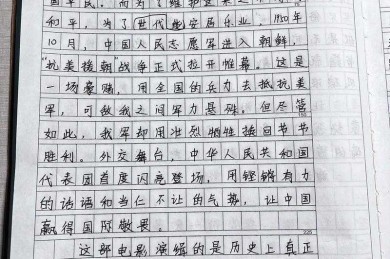 国平民。而为了维护世界之
和平，为了世代能安居乐业，1950年
10月，中国人民志愿军进入朝鲜，
“抗美援朝”战争正式拉开帷幕。这是
一场豪赌，用全国的兵力去抵抗美
军，可敌我之间军力悬殊。但尽管
如此，我军却用壮烈牺牲换回节节
胜利。外交舞台，中华人民共和国
代表团首度闪亮登场，用铿锵有力
的话语和当仁不让的气势，让中国
赢得国际敬畏。
这部电影演绎的是历史上真正